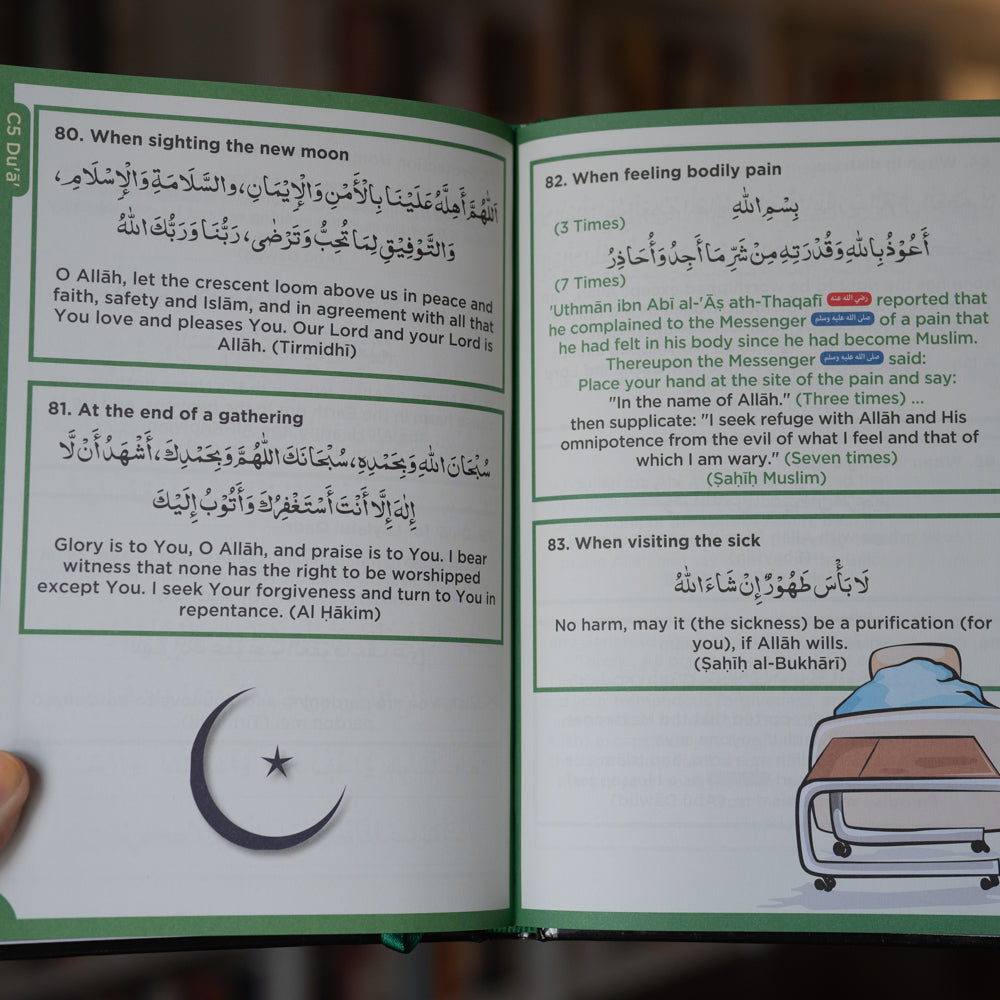 C5 Du'ā'
80. When sighting the new moon
اَللّٰهُمَّ أَهِلَّهُ عَلَيْنَا بِالْأَمْنِ وَالْإِيْمَانِ، وَالسَّلَامَةِ وَالْإِسْلَامِ،
وَالتَّوْفِيْقِ لِمَا تُحِبُّ وَتَرْضٰى، رَبُّنَا وَرَبُّكَ اللّٰهُ
O Allāh, let the crescent loom above us in peace and
faith, safety and Islām, and in agreement with all that
You love and pleases You. Our Lord and your Lord is
Allāh. (Tirmidhī)
81. At the end of a gathering
سُبْحَانَ اللّٰهِ وَبِحَمْدِهِ، سُبْحَانَكَ اللّٰهُمَّ وَبِحَمْدِكَ، أَشْهَدُ أَنْ لَّا
إِلٰهَ إِلَّا أَنْتَ أَسْتَغْفِرُكَ وَأَتُوْبُ إِلَيْكَ
Glory is to You, O Allāh, and praise is to You. I bear
witness that none has the right to be worshipped
except You. I seek Your forgiveness and turn to You in
repentance. (Al Ḥākim)
82. When feeling bodily pain
بِسْمِ اللّٰهِ
(3 Times)
أَعُوْذُ بِاللّٰهِ وَقُدْرَتِهِ مِنْ شَرِّ مَا أَجِدُ وَأُحَاذِرُ
(7 Times)
'Uthmān ibn Abī al-'Āṣ ath-Thaqafī رضي الله عنه reported that
he complained to the Messenger صلى الله عليه وسلم of a pain that
he had felt in his body since he had become Muslim.
Thereupon the Messenger صلى الله عليه وسلم said:
Place your hand at the site of the pain and say:
"In the name of Allāh." (Three times) ...
then supplicate: "I seek refuge with Allāh and His
omnipotence from the evil of what I feel and that of
which I am wary." (Seven times)
(Ṣaḥīḥ Muslim)
83. When visiting the sick
لَا بَأْسَ طَهُوْرٌ إِنْ شَاءَ اللّٰهُ
No harm, may it (the sickness) be a purification (for
you), if Allāh wills.
(Ṣaḥīḥ al-Bukhārī)